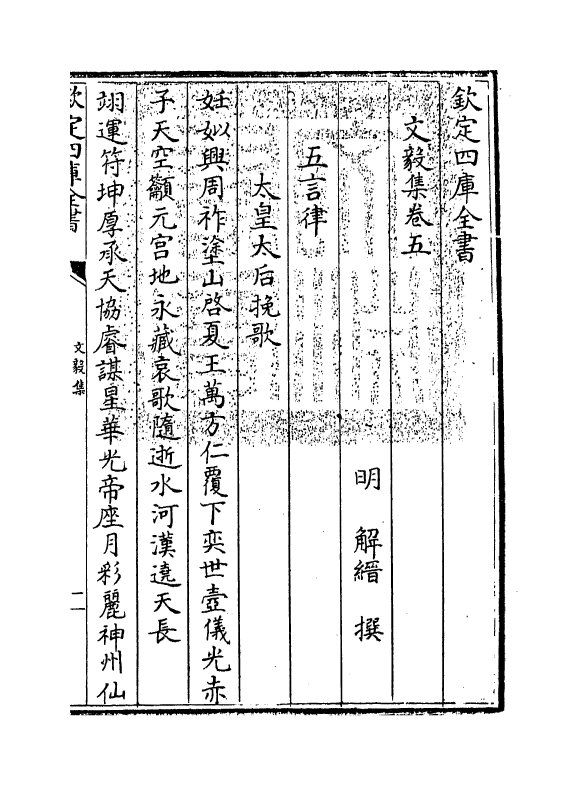 欽定四庫全書
文毅集卷五
明 解縉 撰
五言律
太皇太后挽歌
妊姒興周祚塗山啓夏王萬方仁覆下奕世壼儀光赤
子天空籲元宫地永藏哀歌隨逝水河漢遶天長
翊運符坤厚承天協睿謀星華光帝座月彩麗神州仙
欽定四庫全書
文毅集